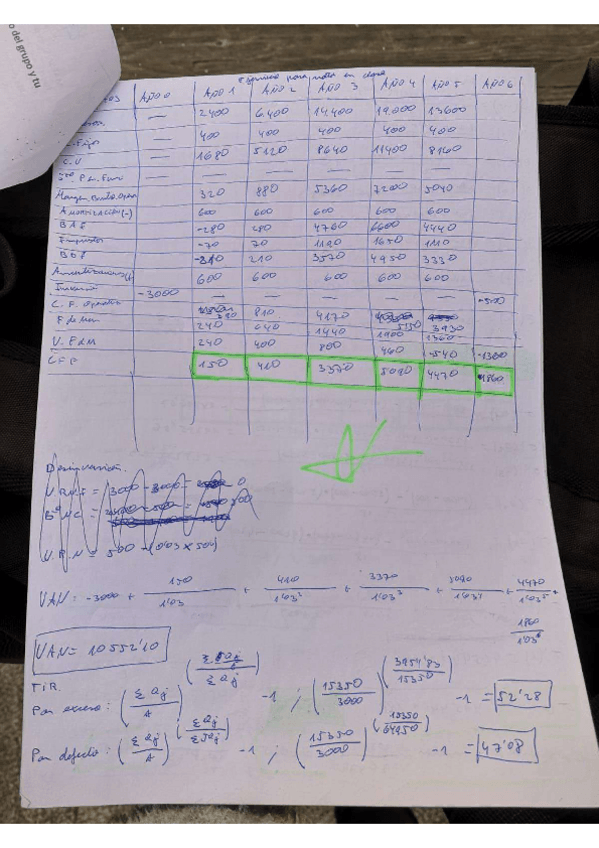 o del grupo y tu
Ejercicio para nota en clase
AÑO 0 AÑO 1 AÑO 2 AÑO 3 AÑO 4 AÑO 5 AÑO 6
— 2400 6.400 14.400 19.000 13600
— 400 400 400 400 400
C.V — 1680 5120 8640 11400 8160
— — — — — —
Margen Bruto 320 880 5360 7200 5040
Amortización (-) 600 600 600 600 600
-280 280 4760 6600 4440
Impuestos -70 70 1190 1650 1110
-210 210 3570 4950 3330
600 600 600 600 600
-3000 — — — — — -500
C. F. 390 810 4170 5550 3930
240 640 1440 1900 1360
240 400 800 460 -540 -1360
150 410 3370 5090 4470 1860
Desinversión:
= 3000 - 3000 = 0
V.R.N = 500 - (0'03 x 500)
VAN = -3000 + 150/1'03 + 410/1'03² + 3370/1'03³ + 5090/1'03⁴ + 4470/1'03⁵ +
1860/1'03⁶
VAN = 10552'10
TiR.
Por exceso: (Σ Qj/A) -1 ; (15350/3000) -1 = 52'28
Por defecto: (Σ Qj/A) -1 ; (15350/3000)^(15350/64950) -1 = 47'08